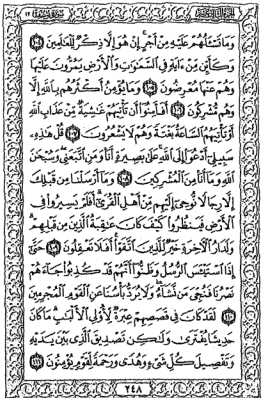 وَمَا تَسْـَٔلُهُمْ عَلَيْهِ مِنْ أَجْرٍ إِنْ هُوَ إِلَّا ذِكْرٌ لِّلْعَٰلَمِينَ ١٠٤
وَكَأَيِّن مِّنْ ءَايَةٍ فِى ٱلسَّمَٰوَٰتِ وَٱلْأَرْضِ يَمُرُّونَ عَلَيْهَا
وَهُمْ عَنْهَا مُعْرِضُونَ ١٠٥ وَمَا يُؤْمِنُ أَكْثَرُهُم بِٱللَّهِ إِلَّا
وَهُم مُّشْرِكُونَ ١٠٦ أَفَأَمِنُوٓا۟ أَن تَأْتِيَهُمْ غَٰشِيَةٌ مِّنْ عَذَابِ ٱللَّهِ
أَوْ تَأْتِيَهُمُ ٱلسَّاعَةُ بَغْتَةً وَهُمْ لَا يَشْعُرُونَ ١٠٧ قُلْ هَٰذِهِۦ
سَبِيلِىٓ أَدْعُوٓا۟ إِلَى ٱللَّهِ عَلَىٰ بَصِيرَةٍ أَنَا۠ وَمَنِ ٱتَّبَعَنِى وَسُبْحَٰنَ
ٱللَّهِ وَمَآ أَنَا۠ مِنَ ٱلْمُشْرِكِينَ ١٠٨ وَمَآ أَرْسَلْنَا مِن قَبْلِكَ
إِلَّا رِجَالًا نُّوحِىٓ إِلَيْهِم مِّنْ أَهْلِ ٱلْقُرَىٰٓ أَفَلَمْ يَسِيرُوا۟ فِى
ٱلْأَرْضِ فَيَنظُرُوا۟ كَيْفَ كَانَ عَٰقِبَةُ ٱلَّذِينَ مِن قَبْلِهِمْ
وَلَدَارُ ٱلْءَاخِرَةِ خَيْرٌ لِّلَّذِينَ ٱتَّقَوْا۟ أَفَلَا تَعْقِلُونَ ١٠٩ حَتَّىٰٓ
إِذَا ٱسْتَيْـَٔسَ ٱلرُّسُلُ وَظَنُّوٓا۟ أَنَّهُمْ قَدْ كُذِبُوا۟ جَآءَهُمْ
نَصْرُنَا فَنُجِّىَ مَن نَّشَآءُ وَلَا يُرَدُّ بَأْسُنَا عَنِ ٱلْقَوْمِ ٱلْمُجْرِمِينَ
١١٠ لَقَدْ كَانَ فِى قَصَصِهِمْ عِبْرَةٌ لِّأُو۟لِى ٱلْأَلْبَٰبِ مَا كَانَ
حَدِيثًا يُفْتَرَىٰ وَلَٰكِن تَصْدِيقَ ٱلَّذِى بَيْنَ يَدَيْهِ
وَتَفْصِيلَ كُلِّ شَىْءٍ وَهُدًى وَرَحْمَةً لِّقَوْمٍ يُؤْمِنُونَ ١١١
٢٤٨